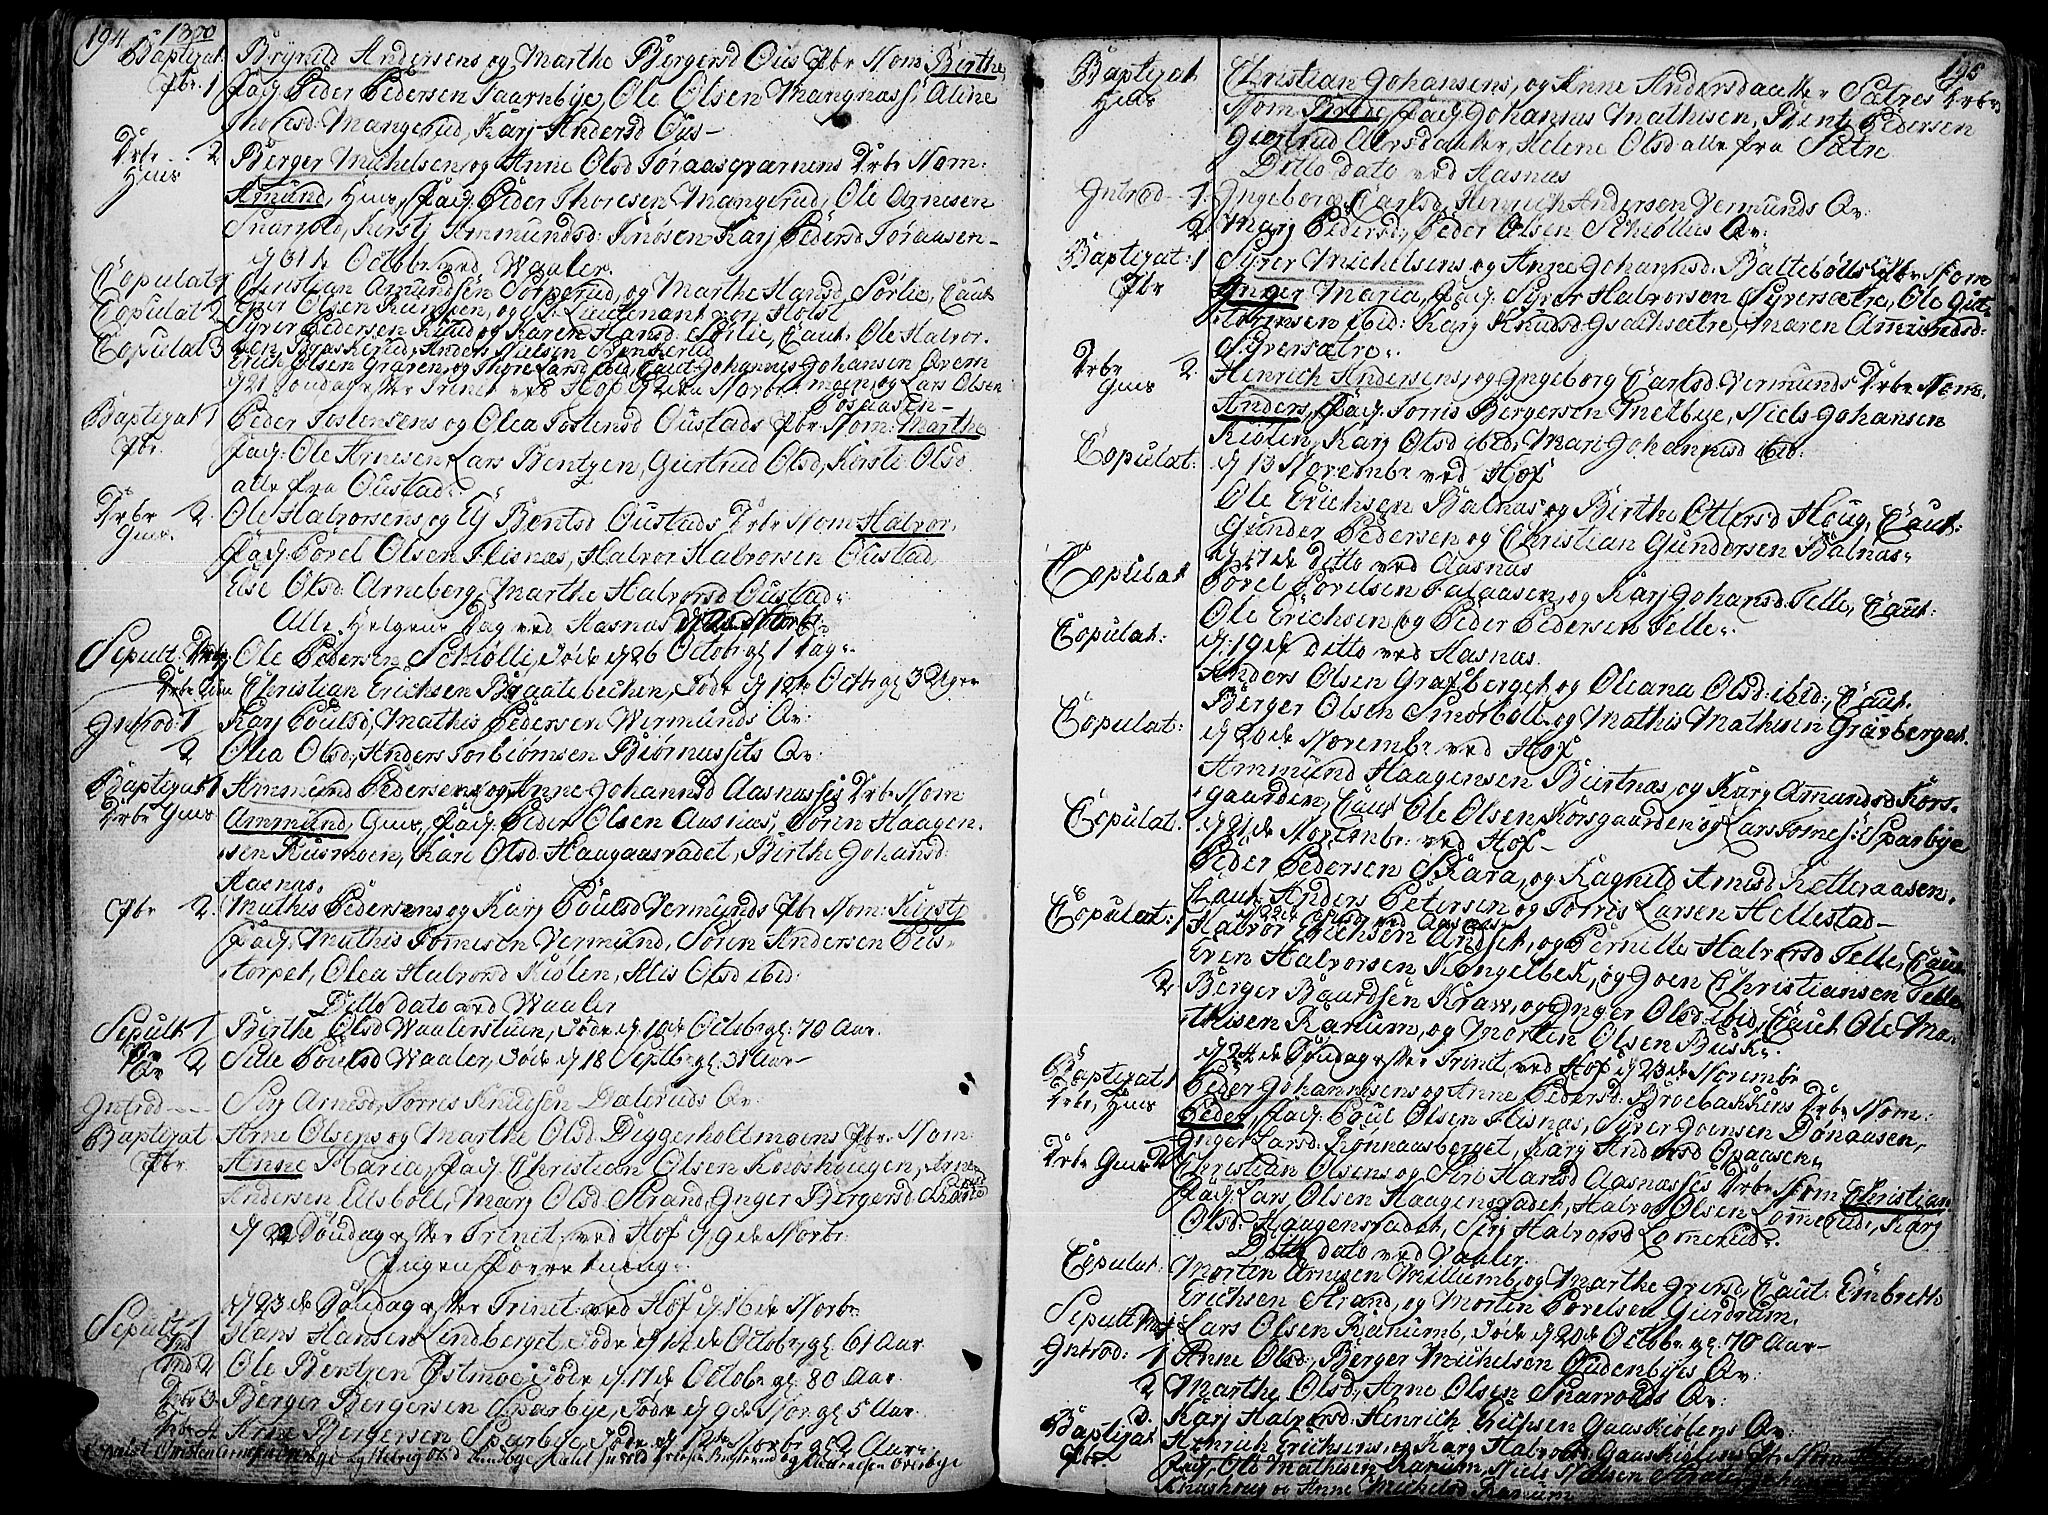 194 1300
Baptizat Brynild Andersens og Marthe Bergersd Ous Pbr Nom: Birthe
Pbr: 1 Fad: Peder Pedersen Taarnbye, Ole Olsen Mangnass: Aline
Thoresd: Mangerud, Karj Andersd Ous-
Drbr 2 Berger Michelsen, og Anne Olsd Toraasqvarnens Drbr Nom:
Hms Amund, Hms, Fad: Peder Thoresen Mangerud, Ole Arnesen
Snarvold, Kirstj Ammundsd: Knosen Karj Pedersd Toraasen-
d 31de Octobr ved Waaler.
Copulat 1 Christian Amundsen Torperud, og Marthe Hansd Sørlie, Caut
Copulat 2 Ener Olsen Rungen, og Hr: Lieutenant von Holst
Syver Pedersen Ruud og Karen Hansd: Sørlie, Caut: Ole Halvor-
Copulat 3 sen Braskerud, Anders Nielsen
Erich Olsen Graven, og Thore Larsd ibid, Caut: Johannes Johansen Qvern
d 21 Søndag efter Trinit: ved Hof d 2den Novbr moen, og Lars Olsen
Posaasen-
Baptizat 1 Peder Jostensens og Olea Jostensd Oustads Pbr Nom: Marthe
Pbr. Fad: Ole Arnesen, Lars Bentzen, Giertrud Olsd, Kirsti Olsd
alle fra Oustad.
Drbr 2 Ole Halvorsens og Elj Bentsd Oustads Drbr Nom Halvor,
Gms. Fad: Povel Olsen Flisnas, Halvor Halvorsen Oustad,
Else Olsd: Arneberg, Marthe Halvorsd Oustad.
Alle Helgens Dag ved Aasnas
Sepult: Drbr Ole Pedersen Schiølli, Døde d 26 Octobr gl 1 Dag.
Drbr Gms Christian Erichsen Braatebechen, Døde d 12te Octbr gl 3 Uger
Introd: 1 Karj Poulsd, Mathis Pedersen Vermunds Qv:
2 Olea Olsd, Anders Torbiørnsen Biørnussits Qv:
Baptizat 1 Ammund Pedersens og Anne Johannsd Aasnasses Drbr Nom
Drbr Gms Ammund, Gms, Fad: Peder Olsen Aasnas, Søren Haagen-
sen Rusmoen, Kari Olsd Haagaasvadet, Birthe Johansd:
Aasnas.
Pbr 2. Mathis Pedersens og Karj Poulsd Vermunds Pbr Nom: Kirstj
Fad: Mathis Tomesen Vermund, Søren Andersen Pels-
torpet, Olea Halvorsd Kiølen, Allis Olsd ibid:
Ditto dato ved Waaler
Sepult 1 Birthe Olsd Waalerstuen, Døde d 10de Octobr gl: 70 Aar.
Qv 2 Sille Poulsd Waaler, Døde d 18 Septbr gl: 31 Aar-
Introd --- Sirj Arnesd, Torris Knudsen Dalerids Qv:
Baptizat Arne Olsens og Marthe Olsd: Diggerholtmoens Pbr. Nom:
Pbr Anne Maria, Fad: Christian Olsen Knoshougen, Arne
Andersen Elsboll, Marj Olsd: Strand, Inger Bergersd
d 22 Søndag efter Trinit: ved Hof d 9de Novbr:
Ingen Forretning.
d 23de Søndag efter Trinit: ved Hof d: 16de Novbr
Sepult 1 Hans Hansen Lindberget, Døde d 14de Octobr, gl 61 Aar
Ind 2 Ole Bentzen Østmoe, Døde d 17de Octobr gl 80 Aar.
Drbr 3. Berger Bergersen Sparbye, Døde d 9de Nov: gl 5 Aar.
4 Arne Bergersen Sparbye, Døde d 12te Novbr gl 2 Aar.
195
Baptizat Christian Johansens, og Anne Andersdatter Sætres Drbr
Hms Nom: Fad: Johannes Mathisen, Bentz Pedersen
Giertrud Alersdatter, Helene Olsd alle fra Sætre
Ditto dato ved Aasnas
Introd - 1. Ingeborg Carlsd, Henrich Andersen Vermunds Qv:
2 Marj Pedersd, Peder Olsen Schiøllus Qv:
Baptizat: 1 Syver Michelsens, og Anne Johannsd: Baltebølls Pbr Nom
Pbr Inger Maria, Fad: Syver Halvorsen Syversætre, Ole Gut-
tormsen ibid: Karj Knudsd Gschsætre, Maren Ammundsd:
Syversætre.
Drbr 2. Henrich Andersens, og Ingeborg Carlsd Vermunds Drbr Nom:
Gms Anders, Fad: Torris Bergersen Melbye, Niels Johansen
Kiølen, Karj Olsd ibid, Mari Johannesd ibid:
Copulat: d 13 Novembr ved Hof
Ole Erichsen Balnas og Birthe Ottersd Houg, Caut:
Gunder Pedersen og Christian Gundersen Balnas.
Copulat d 17de ditto ved Aasnas
Povel Povelsen Falaasen, og Karj Johansd: Telle, Caut:
Ole Erichsen, og Peder Pedersen Telle.
Copulat: d: 19de ditto ved Aasnas
Anders Olsen Grafberget, og Oleana Olsd: ibid:, Caut:
Berger Olsen Smorboll og Mathis Mathisen Gravberget.
Copulat: d 20de Novembr ved Hof
Ammund Haagensen Biertnas, og Karj Amundsd Kors-
gaarden, Caut Ole Olsen Korsgaarden og Lars Tomes: Sparbye
Copulat: d 21de Novembr: ved Hof-
Peder Pedersen Skara, og Ragnild Arnesd Kelleraasen.
Caut Anders Petersen og Torris Larsen Hellestad-
d 22de ditto ved Aasnas
Copulat: 1 Halvor Erichsen Undset, og Pernelle Halvorsd Telle, Caut
Even Halvorsen Kongelbek, og Joen Christiansen Telle
2 Berger Baardsen Kraw, og Inger Olsd: ibid, Caut Ole Ma-
thisen Ranum, og Morten Olsen Busk.
d 24de Søndag efter Trinit, ved Hof d 23de Novembr
Baptizat 1 Peder Johannesens og Anne Pedersd: Broebakkens Drbr Nom:
Drbr, Hms Peder, Fad: Poul Olsen Flisnas, Syver Joensen Dønaasen,
Inger Larsd: Ronnaasberget, Karj Andersd Opaasen.
Drbr Gms 2 Christian Olsens og Siri Hansd Aasnasses Drbr Nom Christian
Fad: Lars Olsen Haagensvadet, Halvor Olsen Lomerud, Karj
Olsd: Haagensvadet, Sirj Halvorsd Lomerud.
Ditto dato ved Vaaler
Copulat: Morten Arnesen Millumb, og Marthe Iversd, Caut: Embreth
Erichsen Strand, og Morten Povelsen Gurdrum.
Sepult Lars Olsen Ranumb, Døde d 20de Octobr gl: 70 Aar-
Introd: 1 Anne Olsd, Berger Michelsen Oudenbyes Qv:
2 Marthe Olsd, Arne Olsen Snarvolds Qv:
3. Karj Halvorsd: Henrich Erichsen Gaaskiølens Qv:
Baptizat Henrich Erichsens, og Karj Halvorsd Gaaskiølens Pbr Nom
Pbr Fad: Ole Mathisen Ranum, Niels Nielsen
Knushoug og Anne Michelsd Ranum